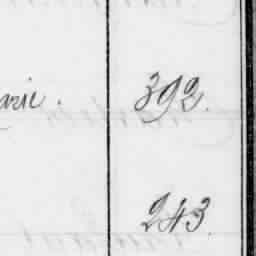 arie. 392.
243.